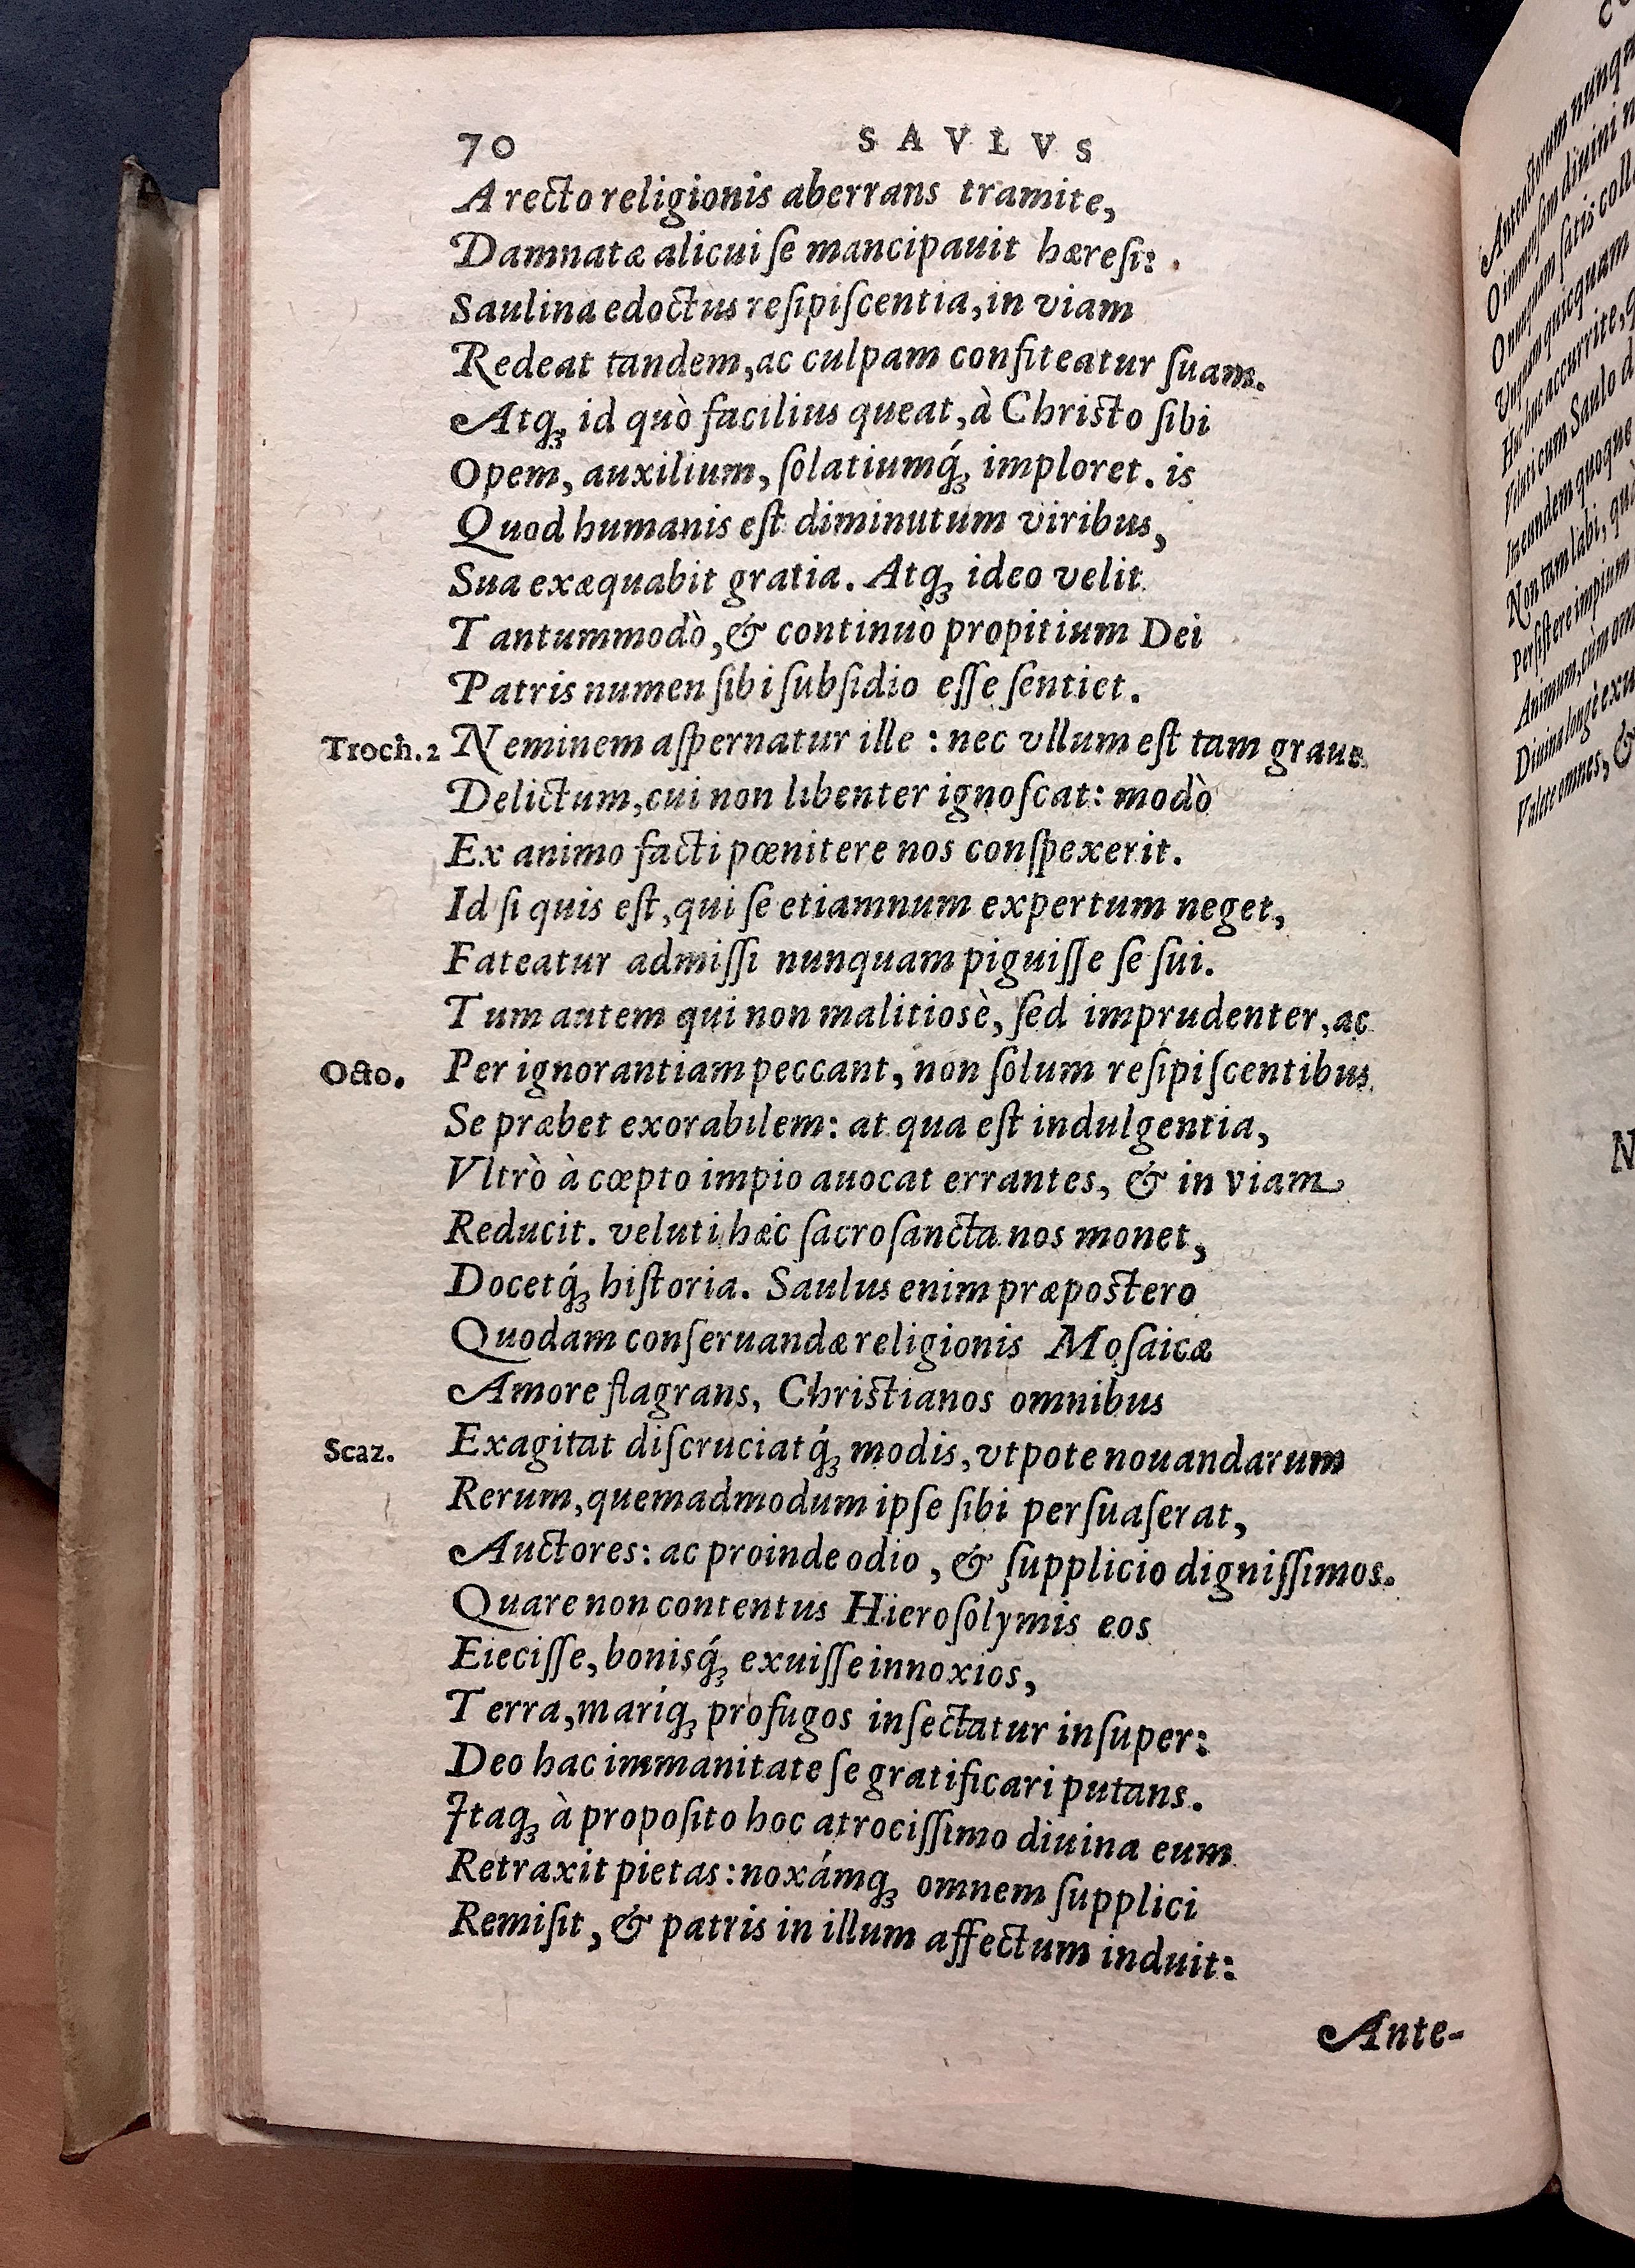 70 SAVLVS
A recto religionis aberrans tramite,
Damnatæ alicui ſe mancipauit hæreſi:
Saulina edoctus reſipiſcentia, in viam
Redeat tandem, ac culpam confiteatur ſuam.
Atq; id quò facilius queat, à Chriſto ſibi
Opem, auxilium, ſolatiumq́; imploret. is
Quod humanis eſt diminutum viribus,
Sua exæquabit gratia. Atq; ideo velit
Tantummodò, & continuò propitium Dei
Patris numen ſibi ſubſidio eſſe ſentiet.
Troch.2 Neminem aſpernatur ille : nec vllum eſt tam graue
Delictum, cui non libenter ignoſcat: modò
Ex animo facti pœnitere nos conſpexerit.
Id ſi quis eſt, qui ſe etiamnum expertum neget,
Fateatur admiſſi nunquam piguiſſe ſe ſui.
Tum autem qui non malitiosè, ſed imprudenter, ac
Octo. Per ignorantiam peccant, non ſolum reſipiſcentibus
Se præbet exorabilem: at qua eſt indulgentia,
Vltrò à cœpto impio auocat errantes, & in viam
Reducit. veluti hæc ſacroſancta nos monet,
Docetq́; hiſtoria. Saulus enim præpoſtero
Quodam conſeruandæ religionis Moſaicæ
Amore flagrans, Chriſtianos omnibus
Scaz. Exagitat diſcruciatq́; modis, vtpote nouandarum
Rerum, quemadmodum ipſe ſibi perſuaſerat,
Auctores: ac proinde odio, & ſupplicio digniſſimos.
Quare non contentus Hieroſolymis eos
Eieciſſe, bonisq́; exuiſſe innoxios,
Terra, maríq; profugos inſectatur inſuper:
Deo hac immanitate ſe gratificari putans.
Itaq; à propoſito hoc atrociſſimo diuina eum
Retraxit pietas: noxámq; omnem ſupplici
Remiſit, & patris in illum affectum induit:
Ante-
Anteactorum nunqu
O immenſam diuini n
O nunquam ſatis coll
Vnquam quicquam
Huc huc accurrite, q
Veluti cum Saulo d
In eundem quoque
Non tam labi, quà
Perſiſtere impium
Animum, cùm om
Diuina longè exu
Valete omnes, &
N